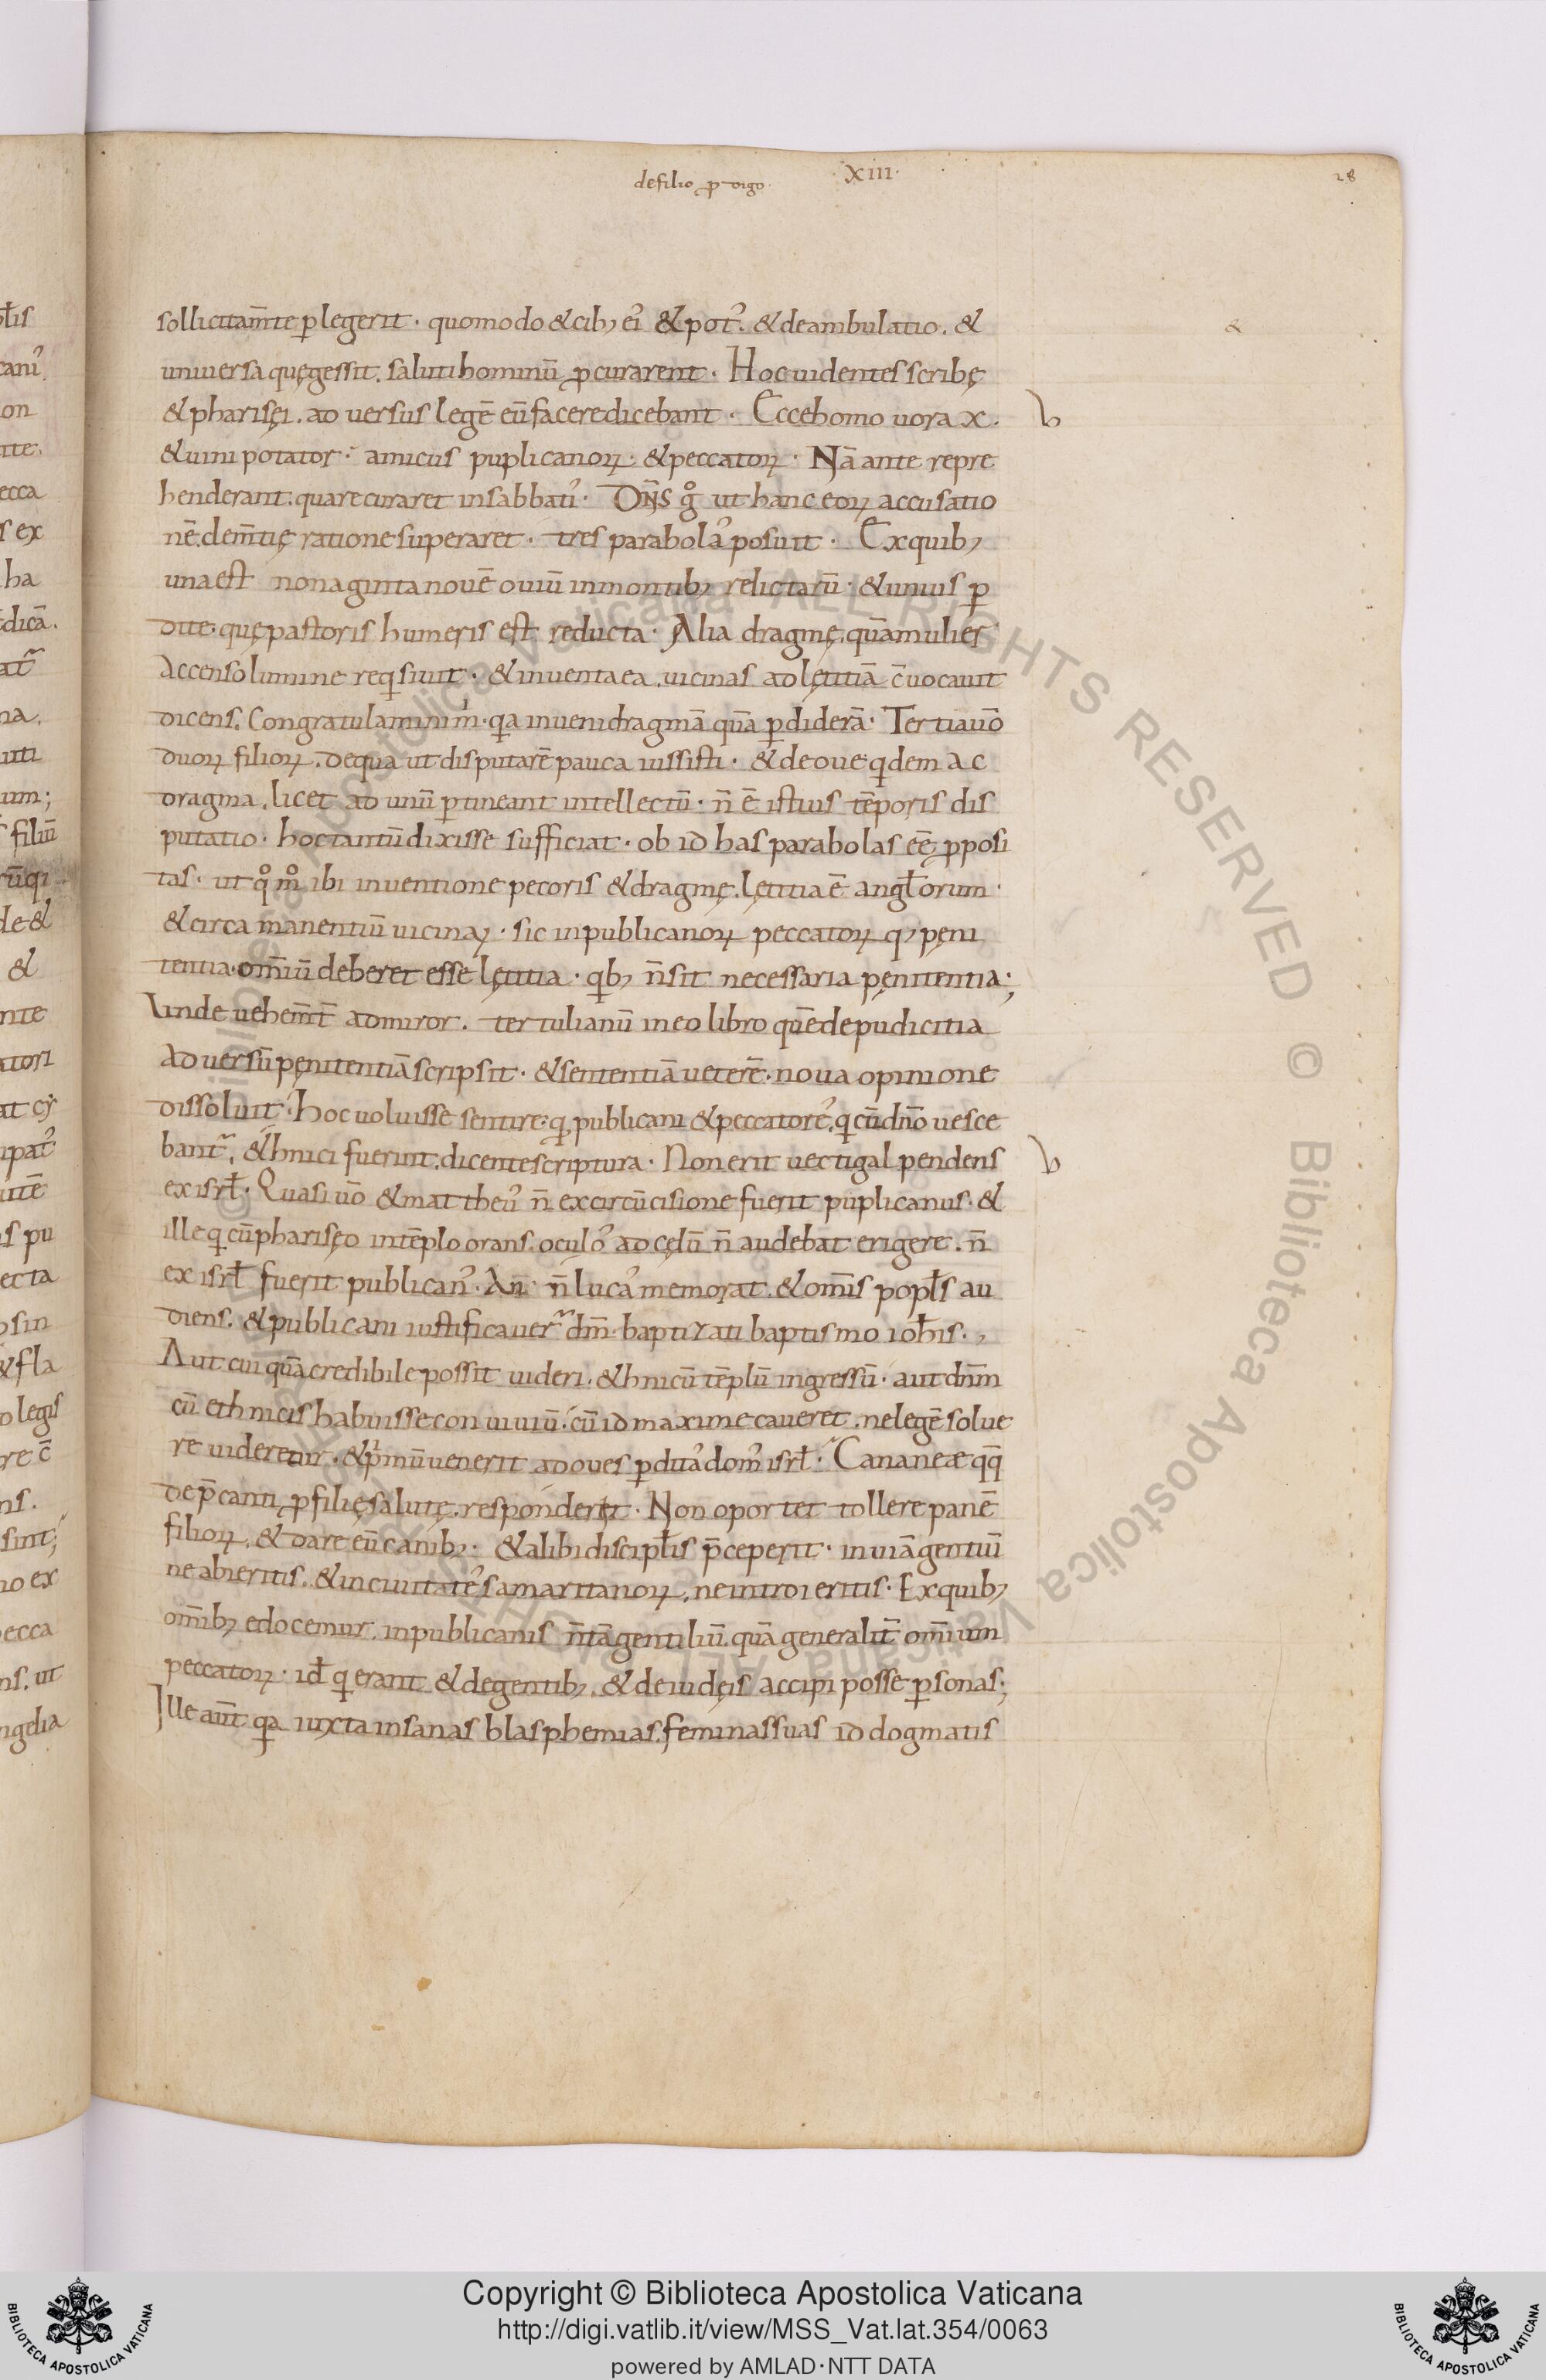 de filio ꝓdigo · XIII · 28
sollicitam̄te ꝑlegerit · quomodo & cib; ei᾿ & pot᾿. & deambulatio. & &
universa quę gessit. saluti hominū ꝓcurarent · Hoc uidentes scribę
& pharisęi. aduersus legē eū facere dicebant · Ecce homo uorax.
& uini potator · amicus puplicanoꝝ · & peccatoꝝ · Nā ante repre
henderant. quare curaret in sabbati᾿ · DN̄S gͦ ut hanc eoꝝ accusatio
nē. dem̄tię ratione superaret · tres parabola᾿ posuit · Ex quib;
una est nonaginta nouē ouiū in montib; relictarū · & unius ꝑ
dite. quę pastoris humeris est reducta · Alia dragmę, quā mulier
Accenso lumine reqisiuit · & inuenta ea. uicinas ad lętitiā c̄uocauit
dicens. Congratulamini m¹ · qa inueni dragmā quā ꝑdiderā · Tertia uō
duoꝝ filioꝝ. de qua ut disputarē pauca iussisti · & de oue qdem ac
dragma, licet ad unū ꝑtineant intellectū · n̄ ē istius tēporis dis
putatio · hoc tantū dixisse sufficiat · ob id has parabolas eē ꝓposi
tas · ut qͦmͦ ibi inuentione pecoris & dragmę. lętitia ē angłorum ·
& circa manentiū uicinaꝝ · sic in publicanoꝝ peccatoꝝ q; pęni
tentia. om̄iū deberet esse lętitia · qb; n̄ sit necessaria pęnitentia;
Unde uehem̄t̄ admiror. tertulianū in eo libro quē de pudicitia
aduersū pęnitentiā scripsit · & sententiā ueterē. noua opinione
dissoluit. hoc uoluisse sentire. qꝺ publicani & peccatore᾿. qi cū dn̄o uesce
bant᷑. &hnici fuerint. dicente scriptura · Non erit uectigal pendens
ex isrł · Quasi uō & mattheu᾿ n̄ ex circūcisione fuerit puplicanus · &
ille qi cū pharisęo in tēplo orans. oculo᾿ ad cęlū n̄ audebat erigere. n̄
ex isrł fuerit publican᾿ · An n̄ luca᾿ memorat. & omīs popłs au
diens. & publicani iustificauer᷑ dm̄. baptizati baptismo ioh̄is.,
Aut cuiquā credibile possit uideri. &hnicū tēplū ingressū · aut dn̄m
cū ethnicis habuisse conuiuiū. cū id maxime caueret. ne legē solue
re uideretur · & pͥmū uenerit ad oues ꝑdita᾿ dom᾿ isrł · Cananeæ qq̄
dep̄canti ꝓ filię salutę. responderit · Non oportet tollere panē
filioꝝ. & dare eū canib; · & alibi discipłis p̄ceperit · in uiā gentiū
ne abieritis. & in ciuitate᾿ samaritanoꝝ. ne introieritis · Ex quib;
om̄ib; edocemur. in publicanis n̄ tā gentiliū. quā generalit̄ om̄ium
peccatoꝝ · id̄ qi erant & de gentib;. & de iudęis accipi posse ꝑsonas;
Ille aūt qa iuxta insanas blasphemias. feminas suas id dogmatis
Copyright © Biblioteca Apostolica Vaticana
http://digi.vatlib.it/view/MSS_Vat.lat.354/0063
powered by AMLAD·NTT DATA